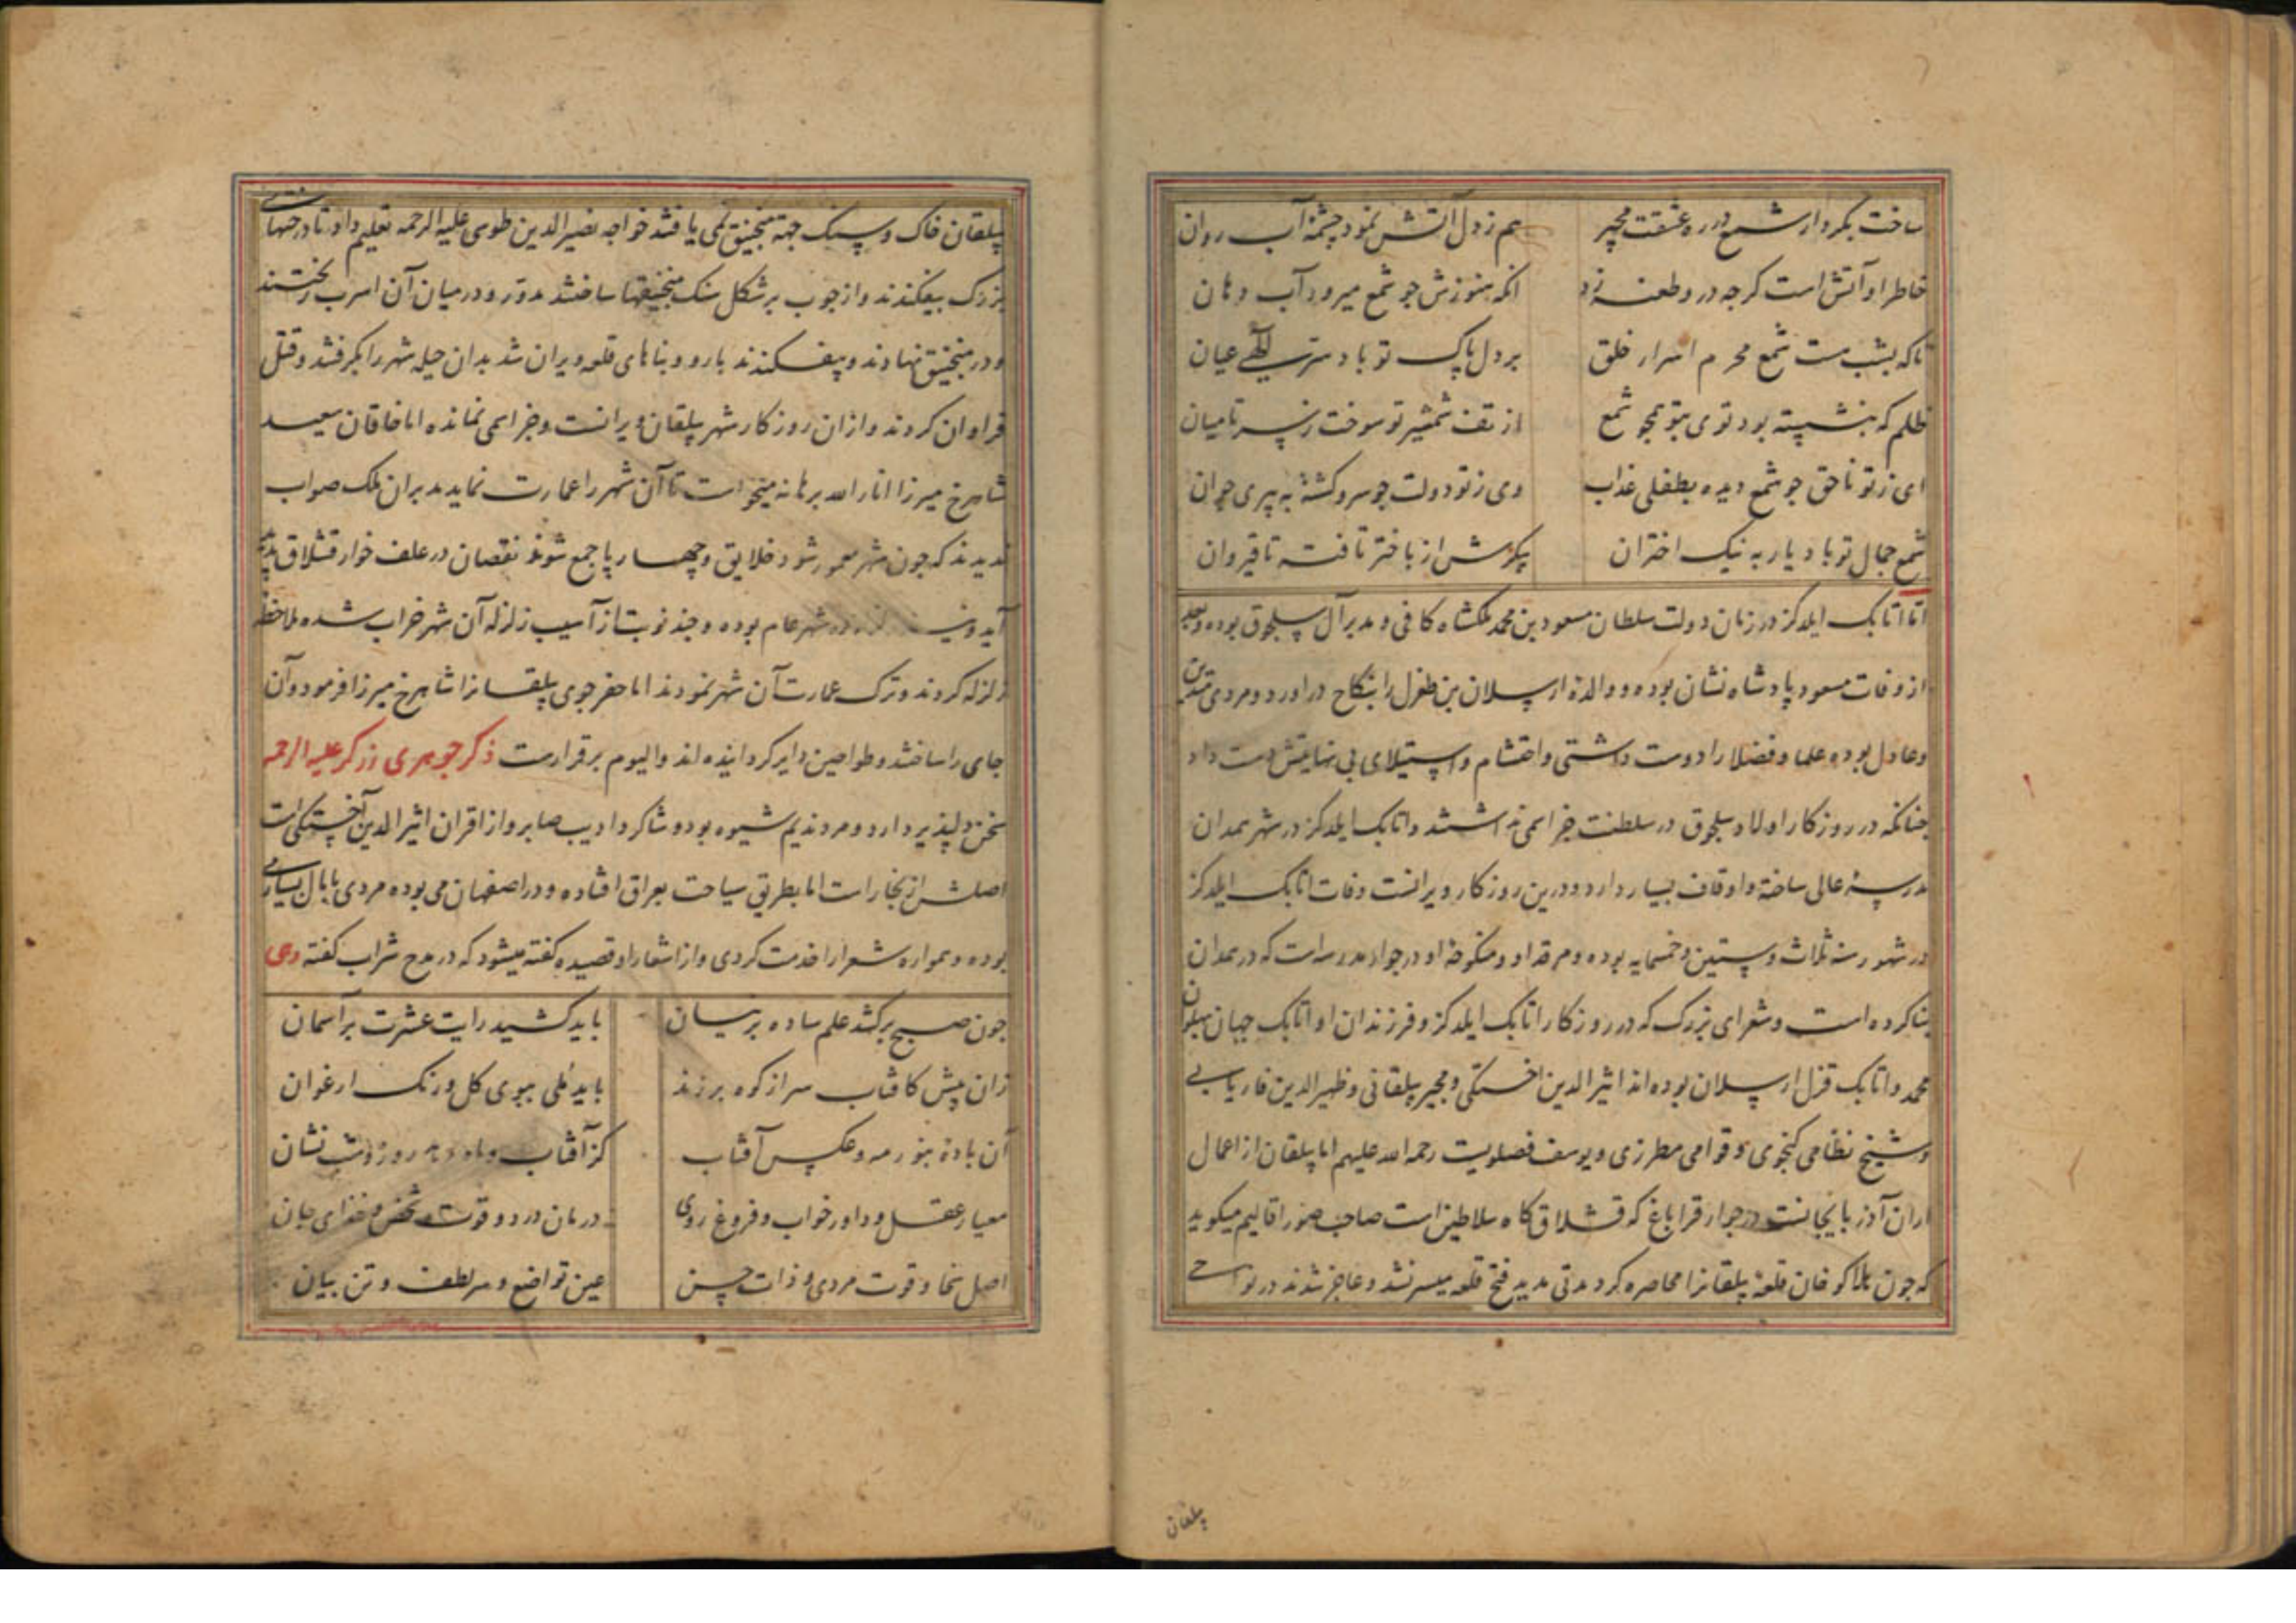 ساخت بکردار شمع در ره عشقت مجیر هم ز دل آتش نمود چشمه آب روان
خاطر او آتش است کرچه درو طعنه زد انکه هنوزش جو شمع میرود آب دهان
تاکه بشب هست شمع محرم اسرار خلق بر دل پاک تو باد سر الهی عیان
ظلم که بنشسته بود توی بتو همچو شمع از تف شمشیر تو سوخت ز سر تا میان
ای ز تو ناحق جو شمع دیده بطفلی عذاب وی ز تو دولت جو سرو کشته به پیری جوان
شمع جمال تو باد یار به نیک اختران پرتوش از باختر تافته تا قیروان
اما اتابک ایلدکز در زمان دولت سلطان مسعود بن محمد ملکشاه کافی و مدبر آل سلجوق بوده و بعد
از وفات مسعود پادشاه نشان بوده و والده ارسلان بن طغرل را بنکاح در آورد و مردی متدین
و عادل بوده علما و فضلا را دوست داشتی و احتشام و استیلای بی نهایتش دست داد
چنانکه در روزکار او اولاد سلجوق در سلطنت جز اسمی نداشتند و اتابک ایلدکز در شهر همدان
مدرسه عالی ساخته و اوقاف بسیار دارد و درین روزکار ویرانست وفات اتابک ایلدکز
در شهور سنه ثلاث و ستین و خمسمایه بوده و مرقد او و منکوحه او در جوار مدرسه است که در همدان
بنا کرده است و شعرای بزرک که در روزکار اتابک ایلدکز و فرزندان او اتابک جهان پهلوان
محمد و اتابک قزل ارسلان بوده اند اثیر الدین اخستکی و مجیر پیلقانی و ظهیر الدین فاریابی
و شیخ نظامی کنجوی و قوامی مطرزی و یوسف فضلویست رحمه الله علیهم اما پیلقان از اعمال
اران آذربایجانست در جوار قراباغ که قشلاق کاه سلاطین است صاحب صور اقالیم میکوید
که جون هلاکو خان قلعه پیلقانرا محاصره کرد مدتی مدید فتح قلعه میسر نشد و عاجز شدند در نواحی
پیلقان
پیلقان خاک و سنک جهة منجنیق نمی یافتند خواجه نصیر الدین طوسی علیه الرحمه تعلیم داد تا درختهای
بزرک بیفکندند و از جوب بر شکل سنک منجنیقها ساختند مدور و در میان آن اسرب ریختند
و در منجنیق نهادند و بیفکندند بارو و بناهای قلعه ویران شد بدان حیله شهر را بکرفتند و قتل
فراوان کردند و از ان روزکار شهر پیلقان ویرانست و جز اسمی نمانده اما خاقان سعید
شاهرخ میرزا انار الله برهانه میخواست تا آن شهر را عمارت نماید مدبران ملک صواب
ندیدند که جون شهر معمور شود خلایق و چهارپا جمع شوند نقصان در علف خوار قشلاق پدید
آید و نیز زلزله در شهر عام بوده و چند نوبت از آسیب زلزله آن شهر خراب شده ملاحظه
زلزله کردند و ترک عمارت آن شهر نمودند اما حفر جوی پیلقانرا شاهرخ میرزا فرمود و آن
جای را ساختند و طواحین دایر کردانیده اند و الیوم برقرارست ذکر جوهری زرکر علیه الرحمه
سخن دلپذیر دارد و مرد ندیم شیوه بود و شاکرد ادیب صابر و از اقران اثیر الدین اخستکی است
اصلش از بخارا است اما بطریق سیاحت بعراق افتاده و در اصفهان می بوده مردی با مال بسیار
بوده و همواره شعرا را خدمت کردی و از اشعار او قصیده کفته میشود که در مدح شراب کفته وهی
جون صبح برکشد علم ساده پرنیان باید کشید رایت عشرت بر آسمان
زان پیش کافتاب سر از کوه بر زند باید ملی ببوی کل و رنک ارغوان
آن باده بنور مه و عکس آفتاب کز آفتاب و ماه دهد روز و شب نشان
معیار عقل و داور خواب و فروغ روی درمان درد و قوت شخص و غذای جان
اصل سخا و قوت مردی و ذات حسن عین تواضع و سر لطف و تن بیان